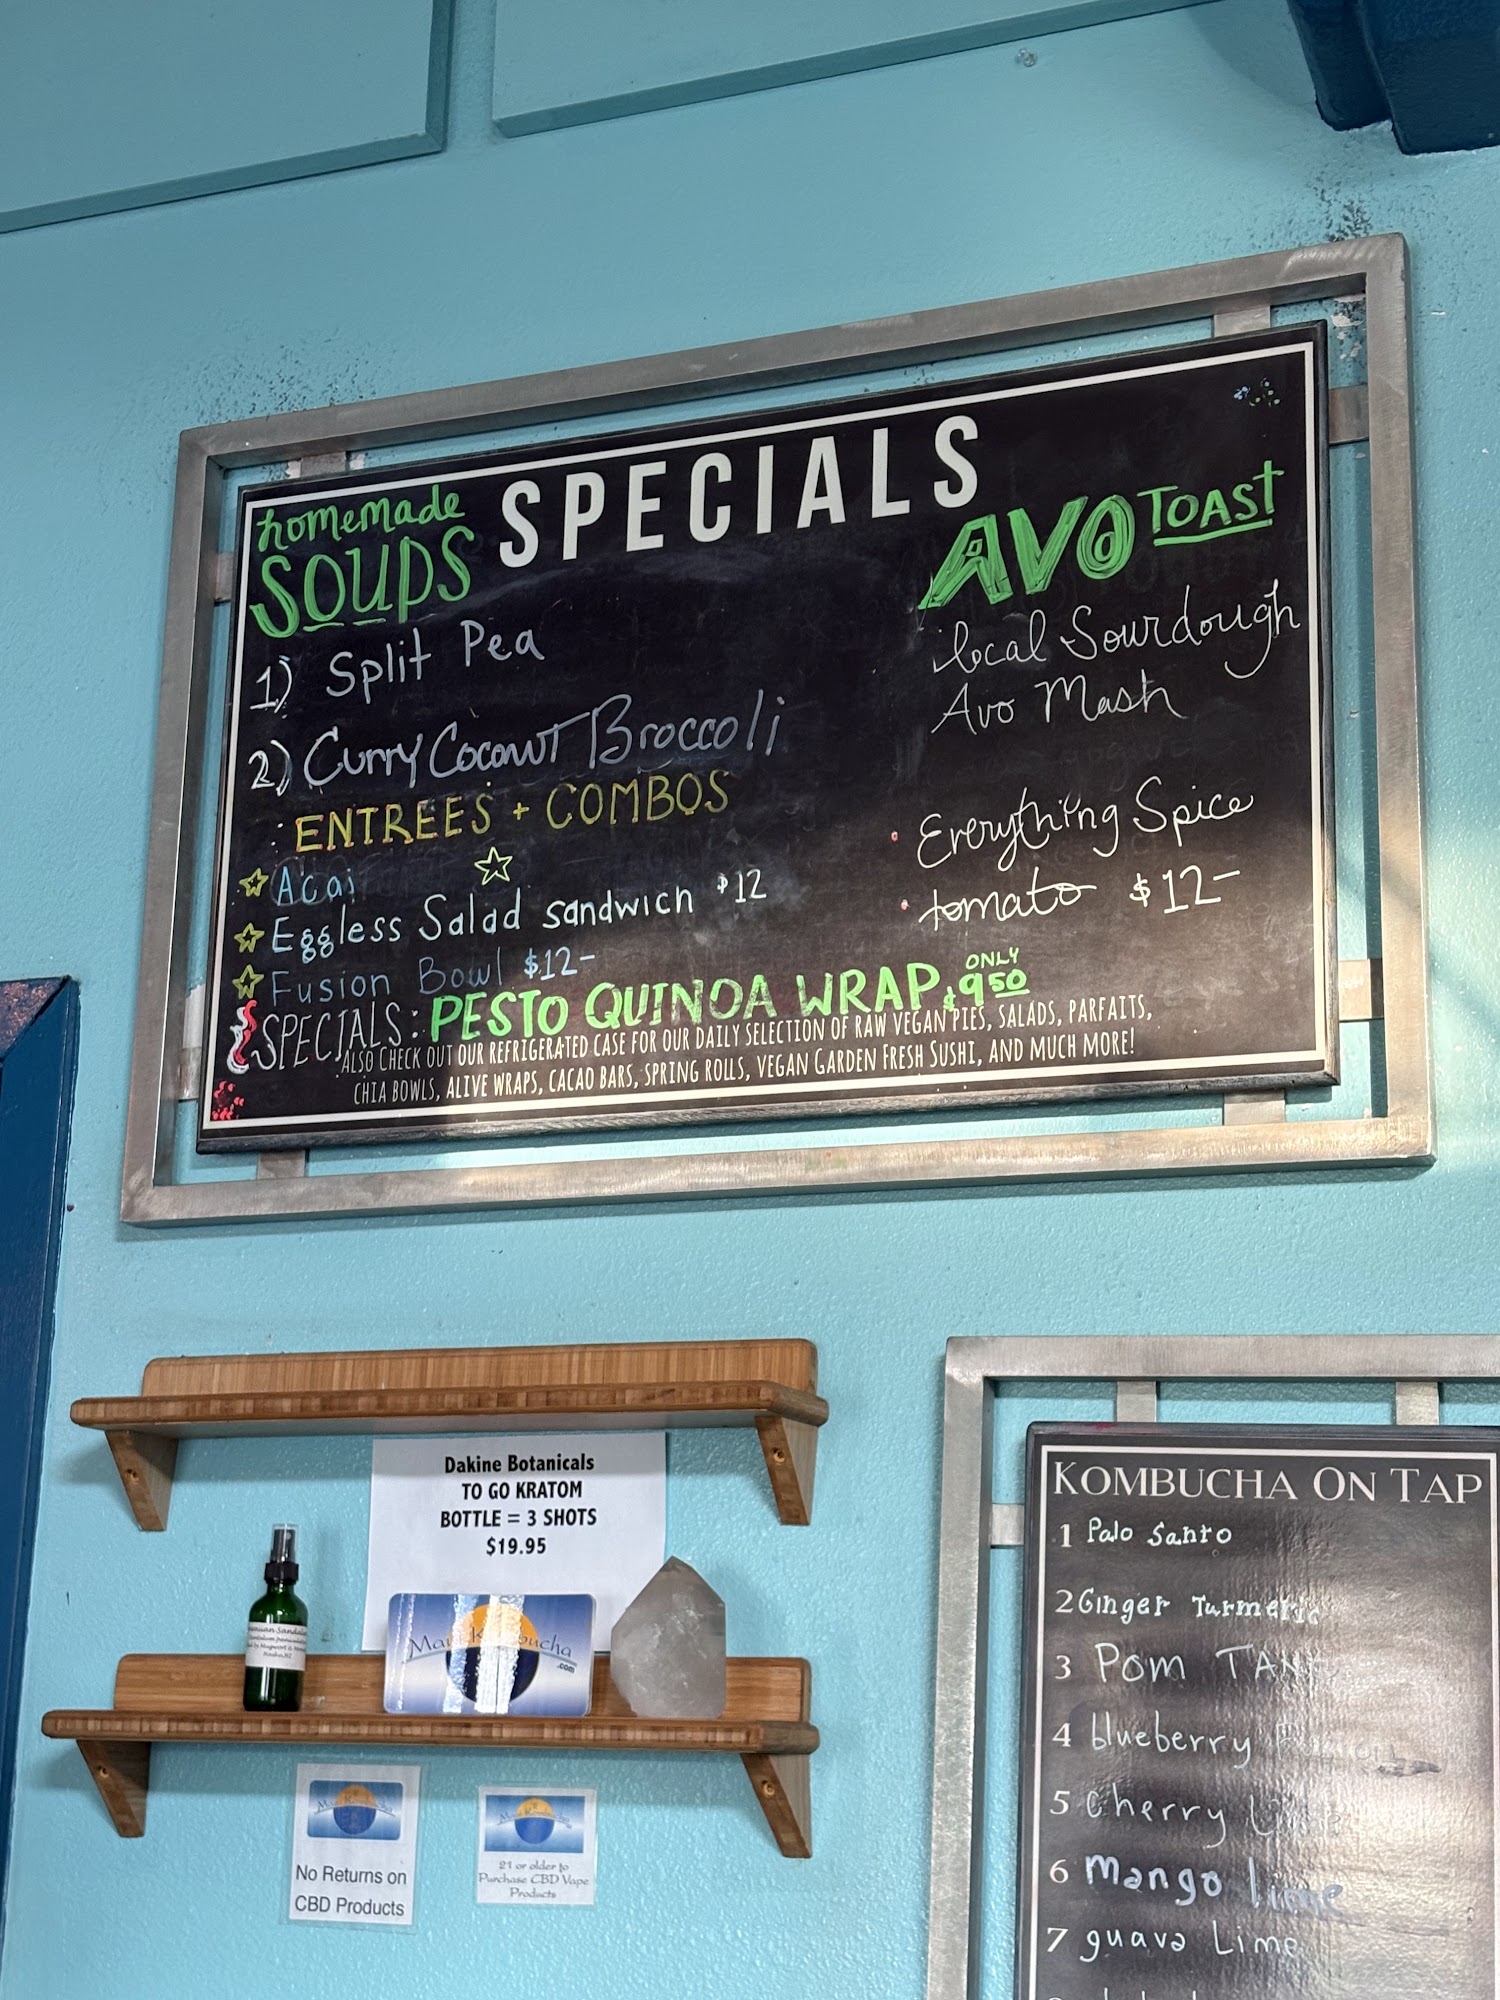 SPECIALS
homemade
SOUPS
1) Split Pea
2) Curry Coconut Broccoli
ENTREES + COMBOS
Acai
Eggless Salad sandwich $12
Fusion Bowl $12-
SPECIALS: PESTO QUINOA WRAP ONLY $9.50
ALSO CHECK OUT OUR REFRIGERATED CASE FOR OUR DAILY SELECTION OF RAW VEGAN PIES, SALADS, PARFAITS,
CHIA BOWLS, ALIVE WRAPS, CACAO BARS, SPRING ROLLS, VEGAN GARDEN FRESH SUSHI, AND MUCH MORE!
AVO TOAST
local Sourdough
Avo Mash
• Everything Spice
• tomato $12-
Dakine Botanicals
TO GO KRATOM
BOTTLE = 3 SHOTS
$19.95
Kombucha
.com
No Returns on
CBD Products
21 or older to
Purchase CBD Vape
Products
KOMBUCHA ON TAP
1 Palo Santo
2 Ginger Turmeric
3 Pom
4 blueberry
5 Cherry
6 Mango lime
7 guava Lime